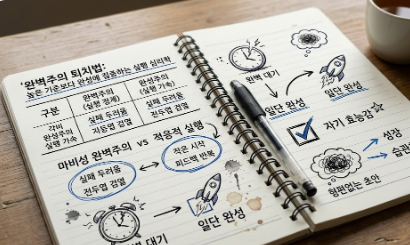 '완벽주의 퇴치법:
높은 기준보다 완성에 집중하는 실행 심리학
구분
완벽주의
(실행 정체)
완성주의
(실행 가속)
완성주의
실행 가속
실패 두려움
지동성 검열
실패 두려움
전두엽 검열
마비성 완벽주의 vs 적응적 실행
실패 두려움
전두엽 검열
작은 시작
피드백 반복
일단 완성
벽 대기
완벽 대기
일단 완성
일단 완성
자기 효능감
성장
습관
형편없는 초안